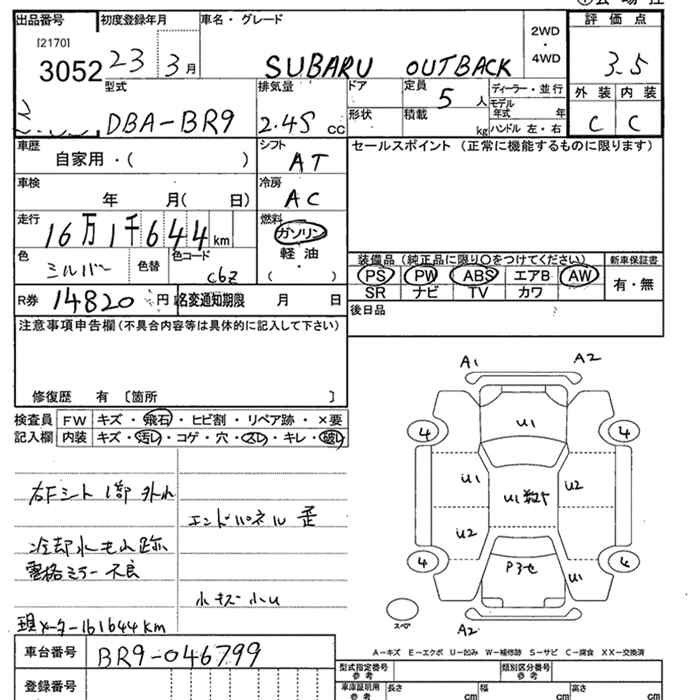 出品番号 初度登録年月 車名・グレード 評価点
[2170] 3052 23 3月 SUBARU OUTBACK 2WD・4WD 3.5
型式 排気量 ドア 定員 5人 ディーラー・並行 外装 内装
DBA-BR9 2.45 cc 形状 積載 kg モデル年式 年 ハンドル 左・右 C C
車歴 自家用・( ) シフト AT セールスポイント (正常に機能するものに限ります)
車検 年 月( 日) 冷房 AC
走行 16万1千644km 燃料 ガソリン 軽油・( )
色 シルバー 色替 色コード C6Z
装備品 (純正品に限り○をつけてください) 新車保証書
PS PW ABS エアB AW 有・無
SR ナビ TV カワ
R券 14820円 名変通知期限 月 日 後日品
注意事項申告欄(不具合内容等は具体的に記入して下さい)
修復歴 有 [箇所 ]
検査員 FW キズ・飛石・ヒビ割・リペア跡・×要
記入欄 内装 キズ・汚レ・コゲ・穴・スレ・キレ・破レ
右Fシート 1部 外れ
エンドパネル 歪
冷却水もれ跡
電格ミラー不良
小キズ 小U
現メーター161644km
A1 A2
U1
4 4
U1 U1 U2
U2
4 P3セ U1 4
スペア A2
A-キズ E-エクボ U-凹み W-補修跡 S-サビ C-腐食 XX-交換済
車台番号 BR9-046799
型式指定番号 参考 類別区分番号 参考
登録番号 車庫証明用 参考 長さ cm 幅 cm 高さ cm